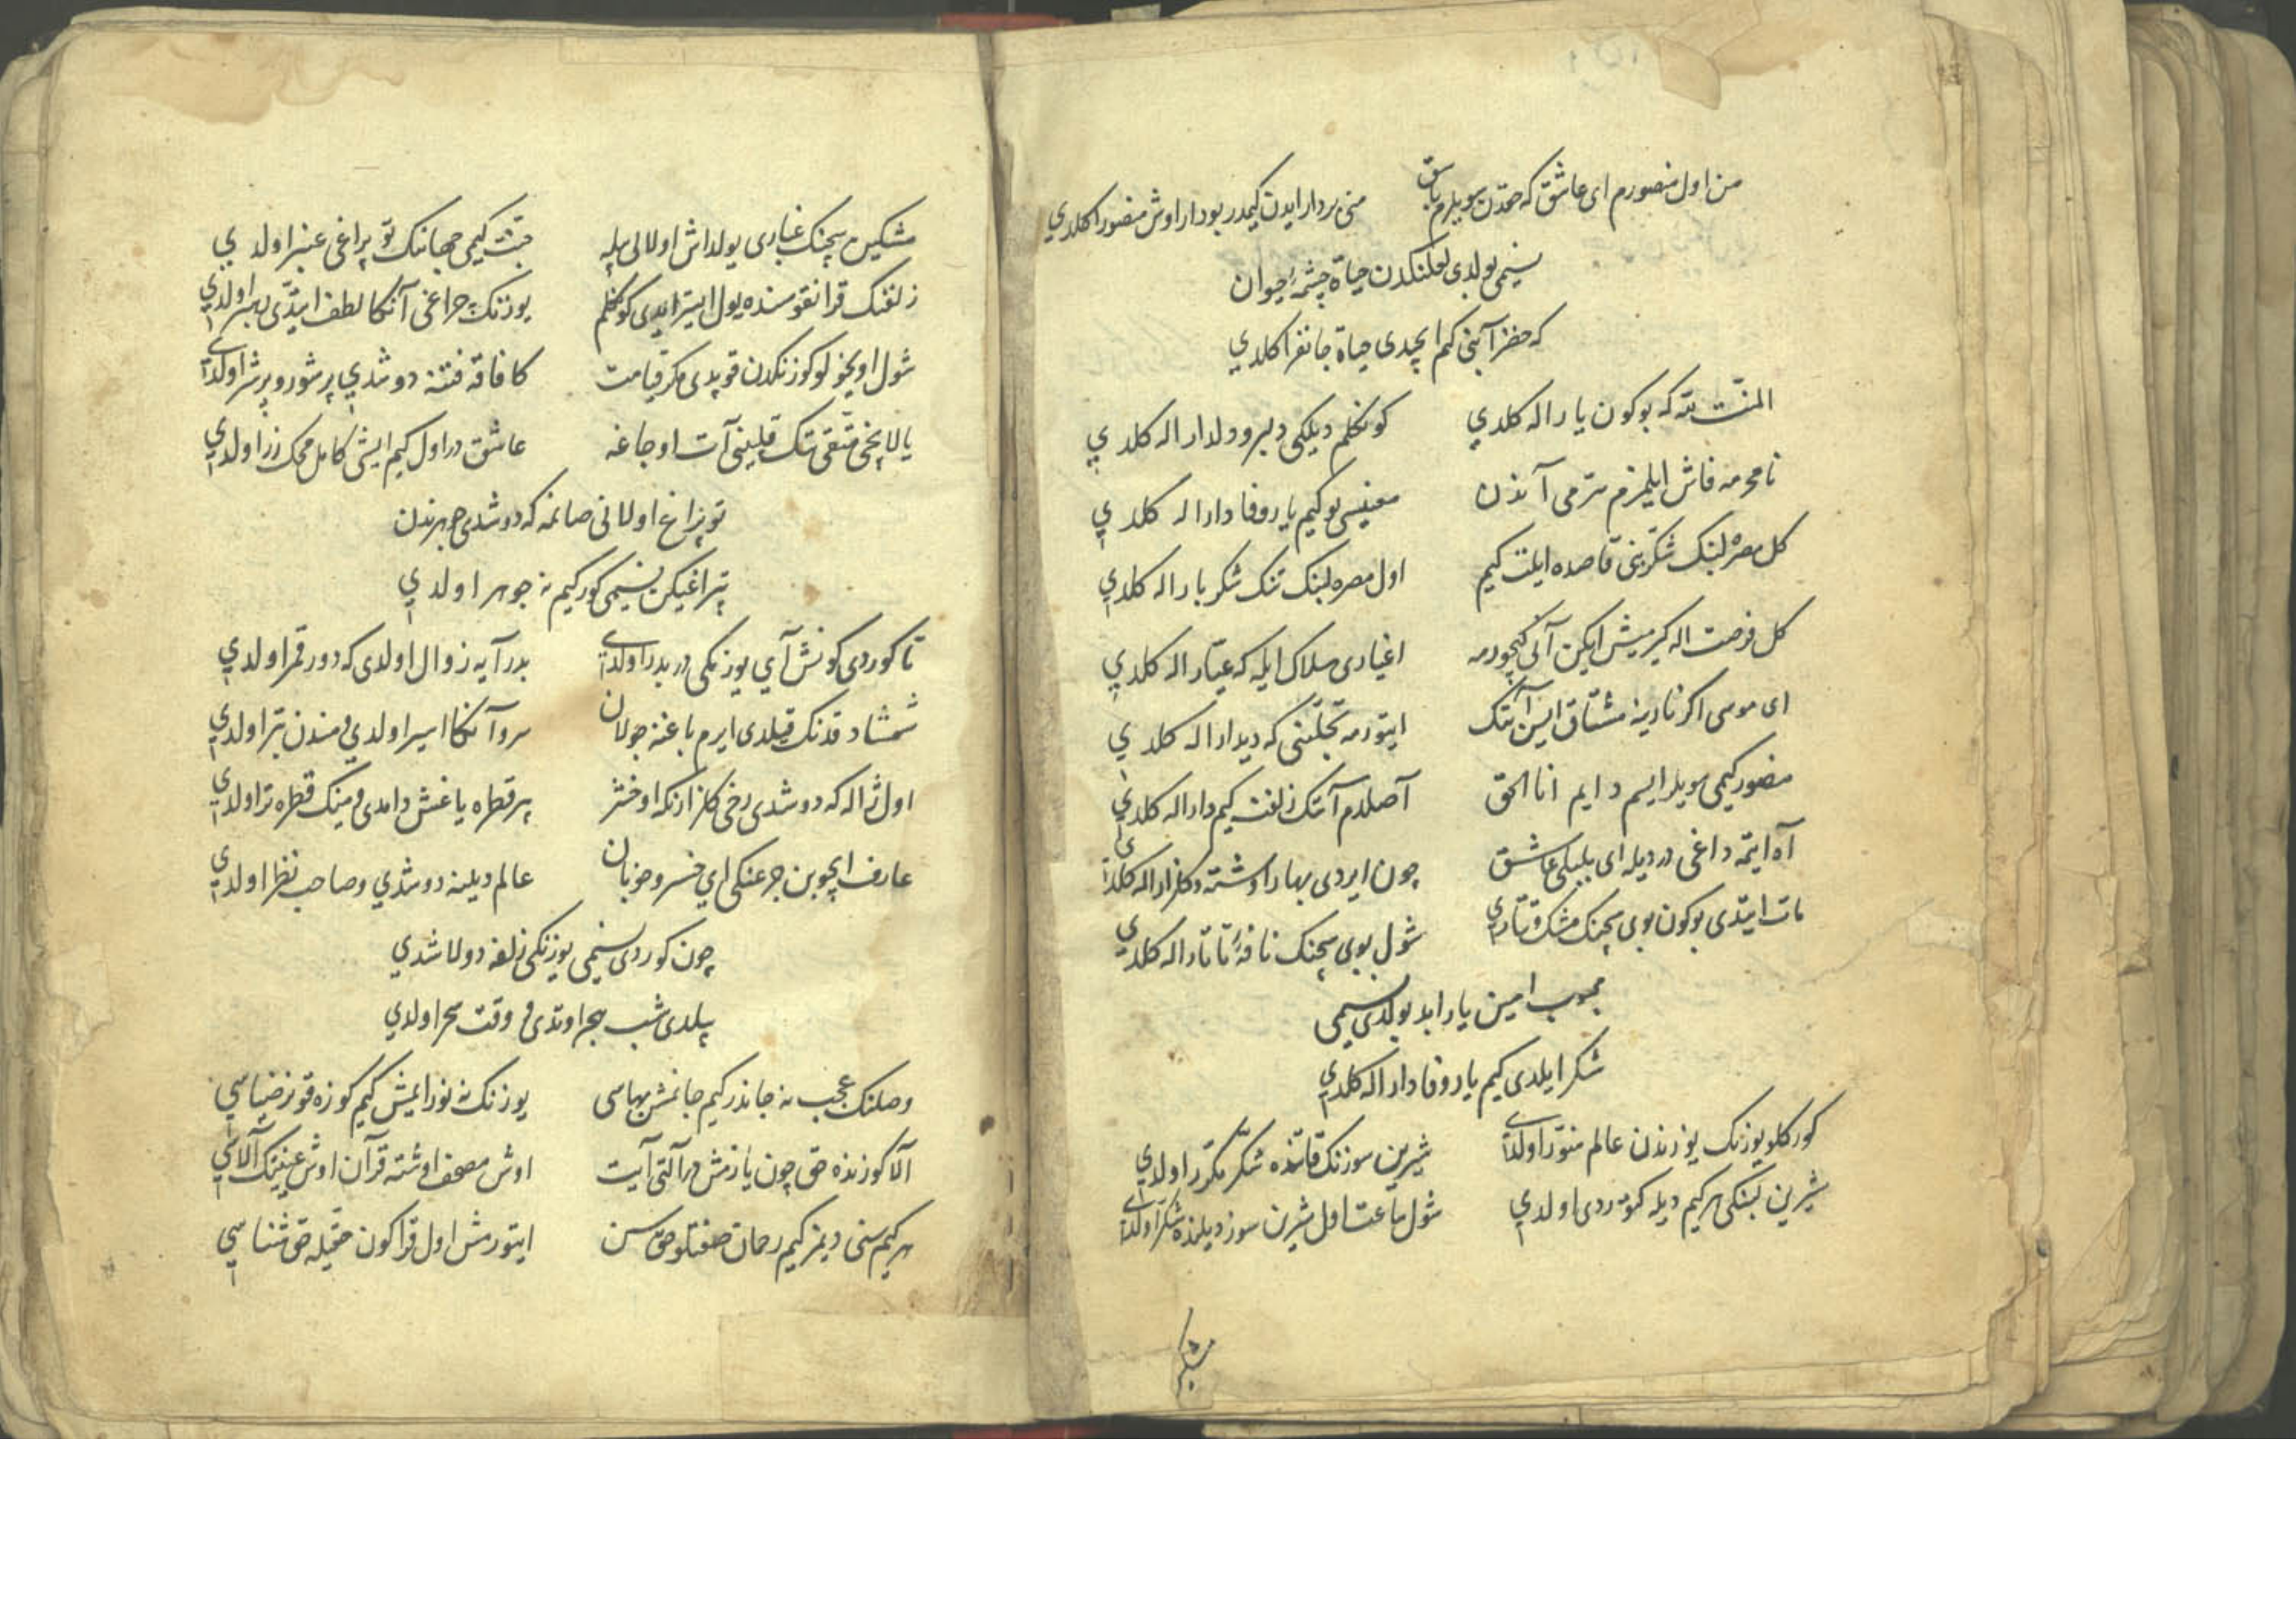 من اول منصورم ای عاشق که حقدن سویلرم باق منی بردار ایدن کیمدر بو دار اوش منصورا کلدي
نسیمی بولدی لعلنکدن حیاة چشمۀ حیوان
که خضر آبنی کم ایچدی حیاة جانفزا کلدي
المنّت لله که بوکون یار اله کلدي کونکلم دیلکی دلبر و دلدار اله کلدي
نامحرمه فاش ایلمزم سرّمی آندن معنیسی بو کیم یار وفادار اله کلدي
کل مصره لبنک شکّرینی قاصده ایلت کیم اول مصره لبنک تنک شکر بار اله کلدي
کل فرصت اله کیرمیش ایکن آنی کچورمه اغیاری هلاک ایله که عیّار اله کلدي
ای موسی اکر نارینه مشتاق ایسن آنک ایتورمه تجلّینی که دیدار اله کلدي
منصور کیمی سویلر ایسم دایم انا الحق آصلدم آنک زلفنه کیم دار اله کلدي
آه ایتمه داغی در دیله ای بلبلی عاشق چون ایردی بهار اوشته و کلزار اله کلدي
مات ایتدی بوکون بوی سچنک مشک تتاری شول بوی سچنک نافۀ تاتار اله کلدي
محبوب امین یار ابد بولدی نسیمی
شکر ایلدی کیم یار وفادار اله کلدي
کورکلو یوزنک یوزندن عالم منوّر اولدي شیرین سوزنک قاتنده شکّر مکرّر اولدي
شیرین لبنکی هر کیم دیله کتوردی اولدي شول ساعت اول شرین سوز دیلنده شکّر اولدي
مشکین
مشکین سچنک غباری یولداش اولالی یله جنّت کیمی جهاننک توپراغی عنبر اولدي
زلفنک قرانقوسنده یول ایستر ایدی کونکلم یوزنک چراغی آنکا لطف ایتدی رهبر اولدي
شول اویخولو کوزنکدن قوپدی مکر قیامت کافاقه فتنه دوشدي پر شور و پر شر اولدي
یالایخی متقی تک قلبینی آت اوجاغه عاشق در اول کیم ایشی کامل محک زر اولدي
توپراغ اولانی صانمه که دوشدی جوهرندن
تپراغیکن نسیمی کور کیم نه جوهر اولدي
تا کوردی کونش آي یوزنکی در بدر اولدي بدر آیه زوال اولدی که دور قمر اولدي
شمشاد قدنک قیلدی ایرم باغنه جولان سرو آنکا اسیر اولدي و مندن بتر اولدي
اول ژاله که دوشدی رخی کلزارنکه اوخشر هر قطره یاغش دامدی و مینک قطره تر اولدي
عارف ایچوبن جرعنکی اي خسرو خوبان عالم دیلینه دوشدي و صاحب نظر اولدي
چون کوردی نسیمی یوزنکی زلفه دولاشدي
بیلدی شب هجر اوتدی و وقت سحر اولدي
وصلنک عجب نه جاندر کیم جانمش بهاسی یوزنک نه نور ایمیش کیم کوزه قونر ضیاسي
آلا کوزنده حق چون یازمش در آلتی آیت اوش مصحف اوشته قرآن اوش عینینک آلاسي
هر کیم سنی دیمز کیم رحمان صفتلو حق سن ایتورمش اول قرا کون حقیله حق شناسي